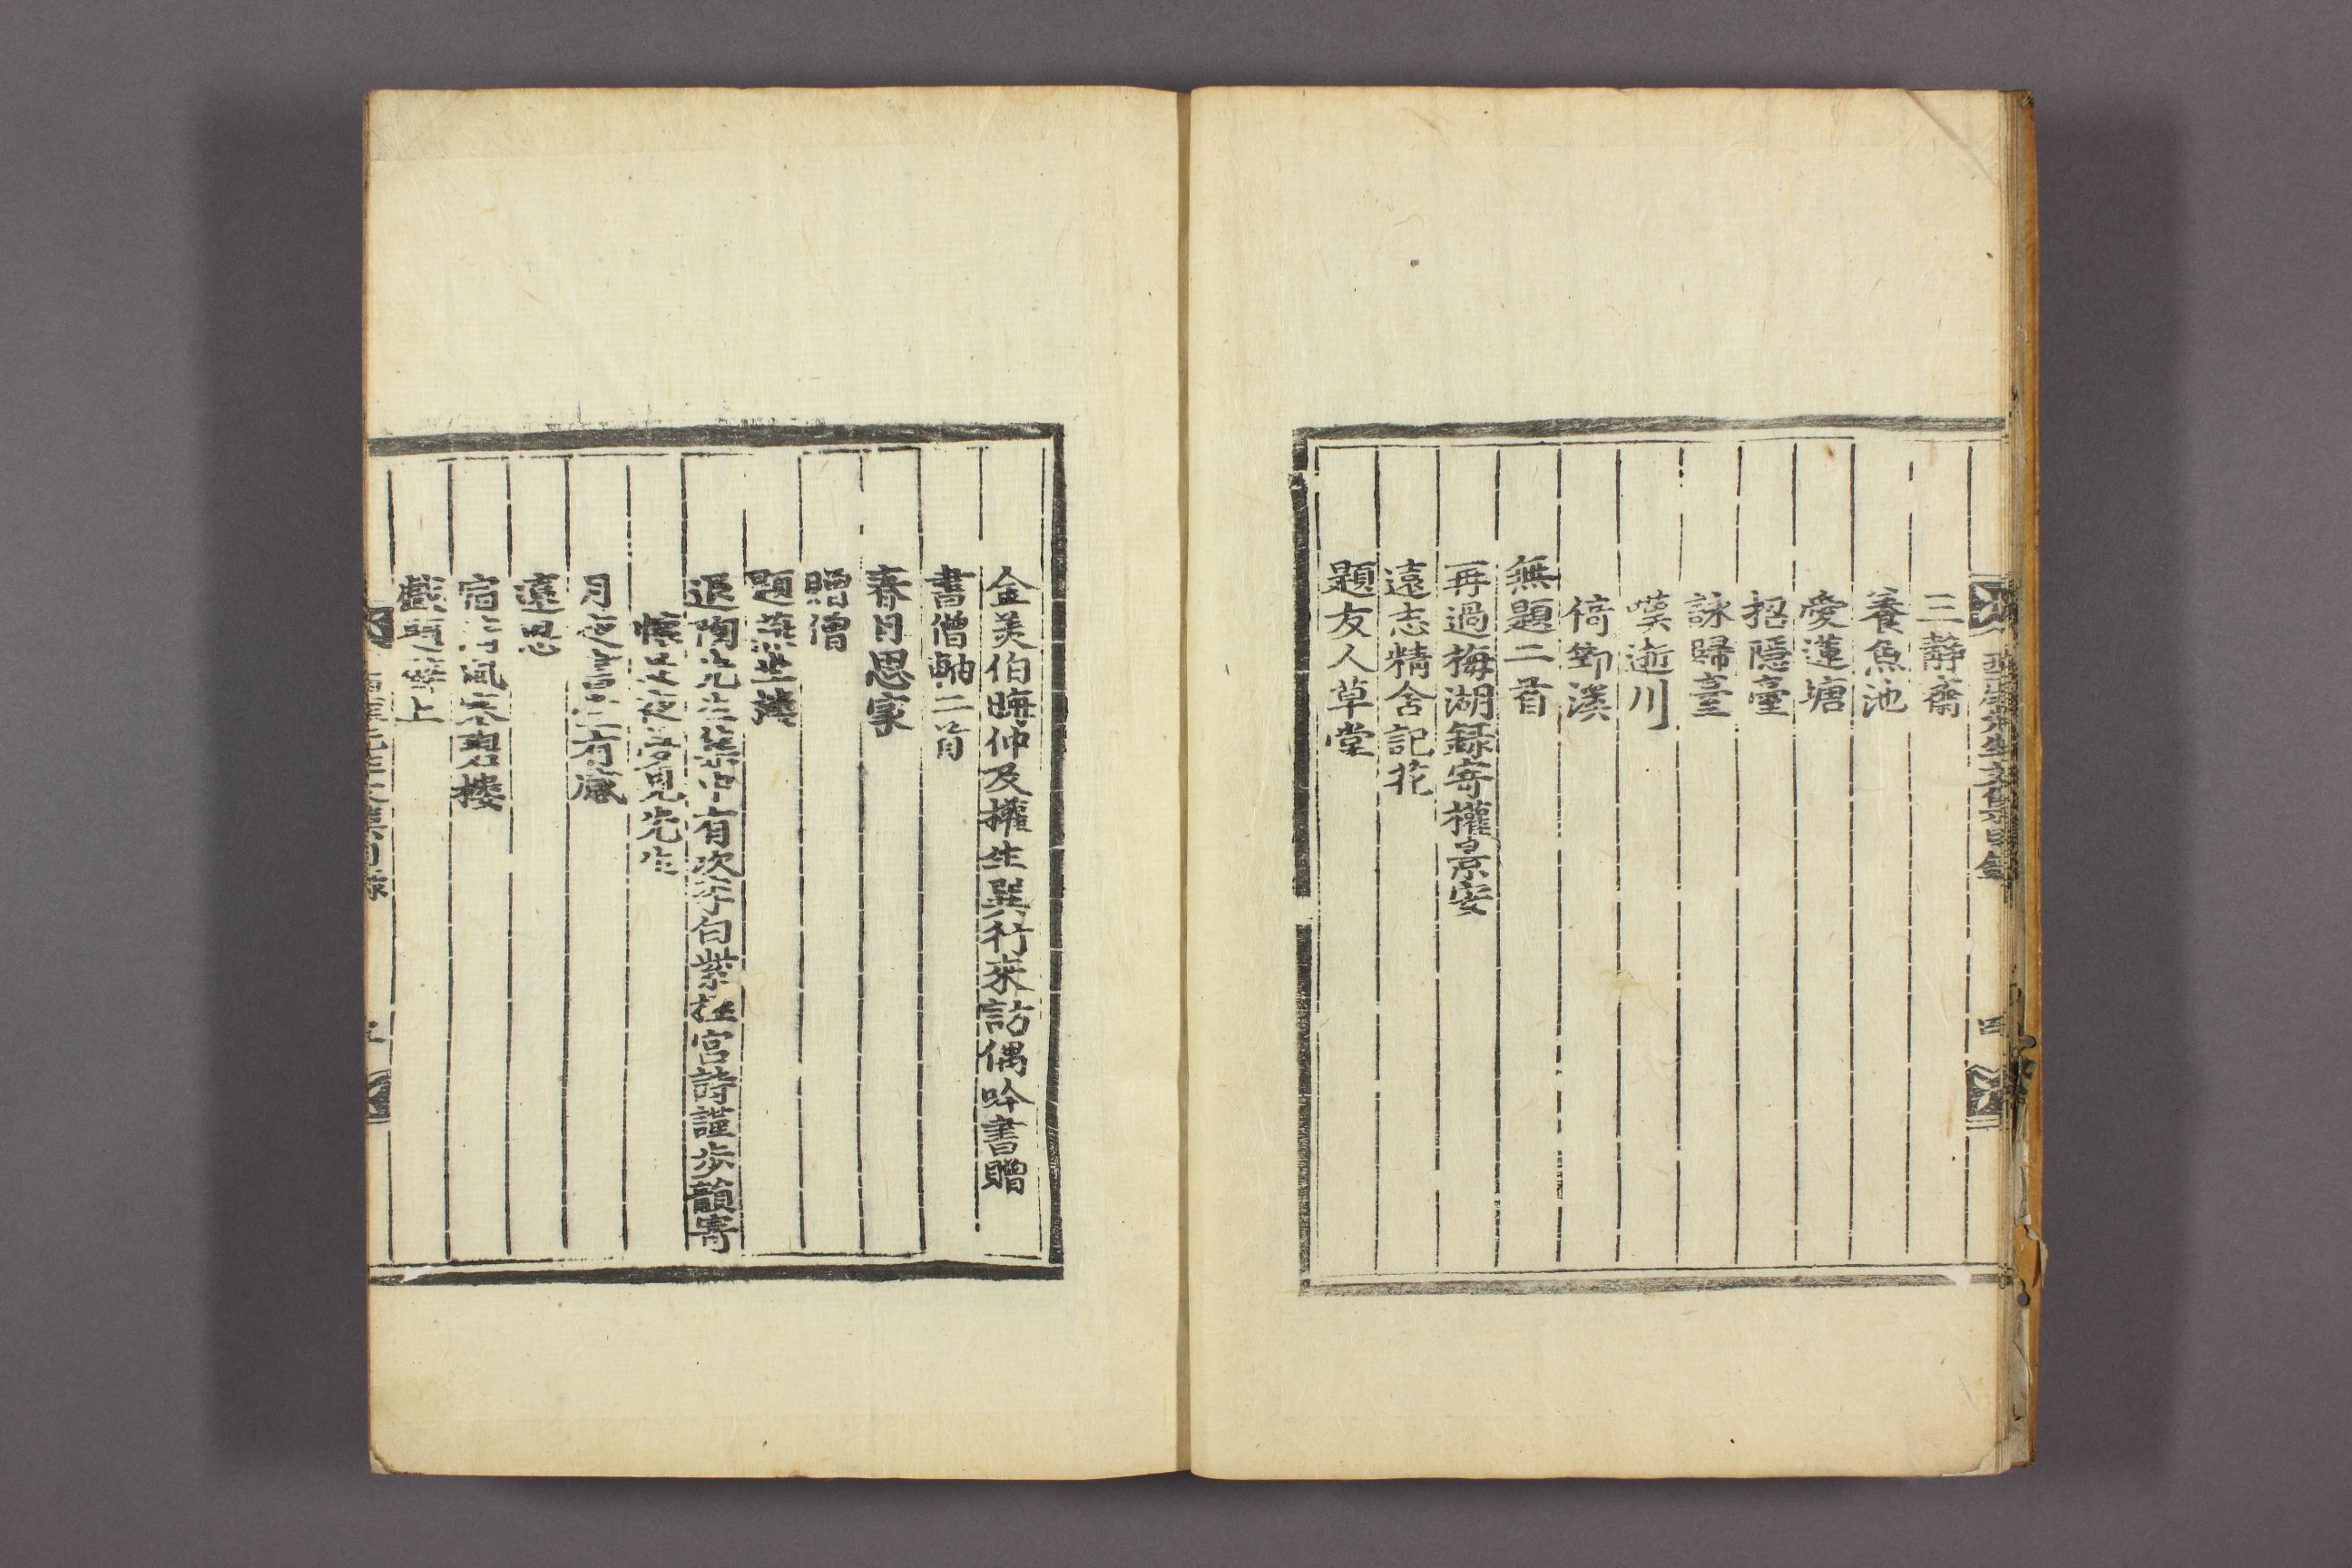 先生文集目錄
四
三靜齋
養魚池
愛蓮塘
招隱臺
詠歸臺
嘆逝川
倚筇溪
無題二首
再過梅湖録寄權景安
遠志精舍記花
題友人草堂
金美伯晦仲及權生㠯行來訪偶吟書贈
書僧軸二首
春日思家
贈僧
題燕坐樓
退陶先生集中有次李白紫極宮詩謹步韻寄
懷是夜夢見先生
月夜書 有感
遠思
宿 碧樓
戲 上
先生文集目錄